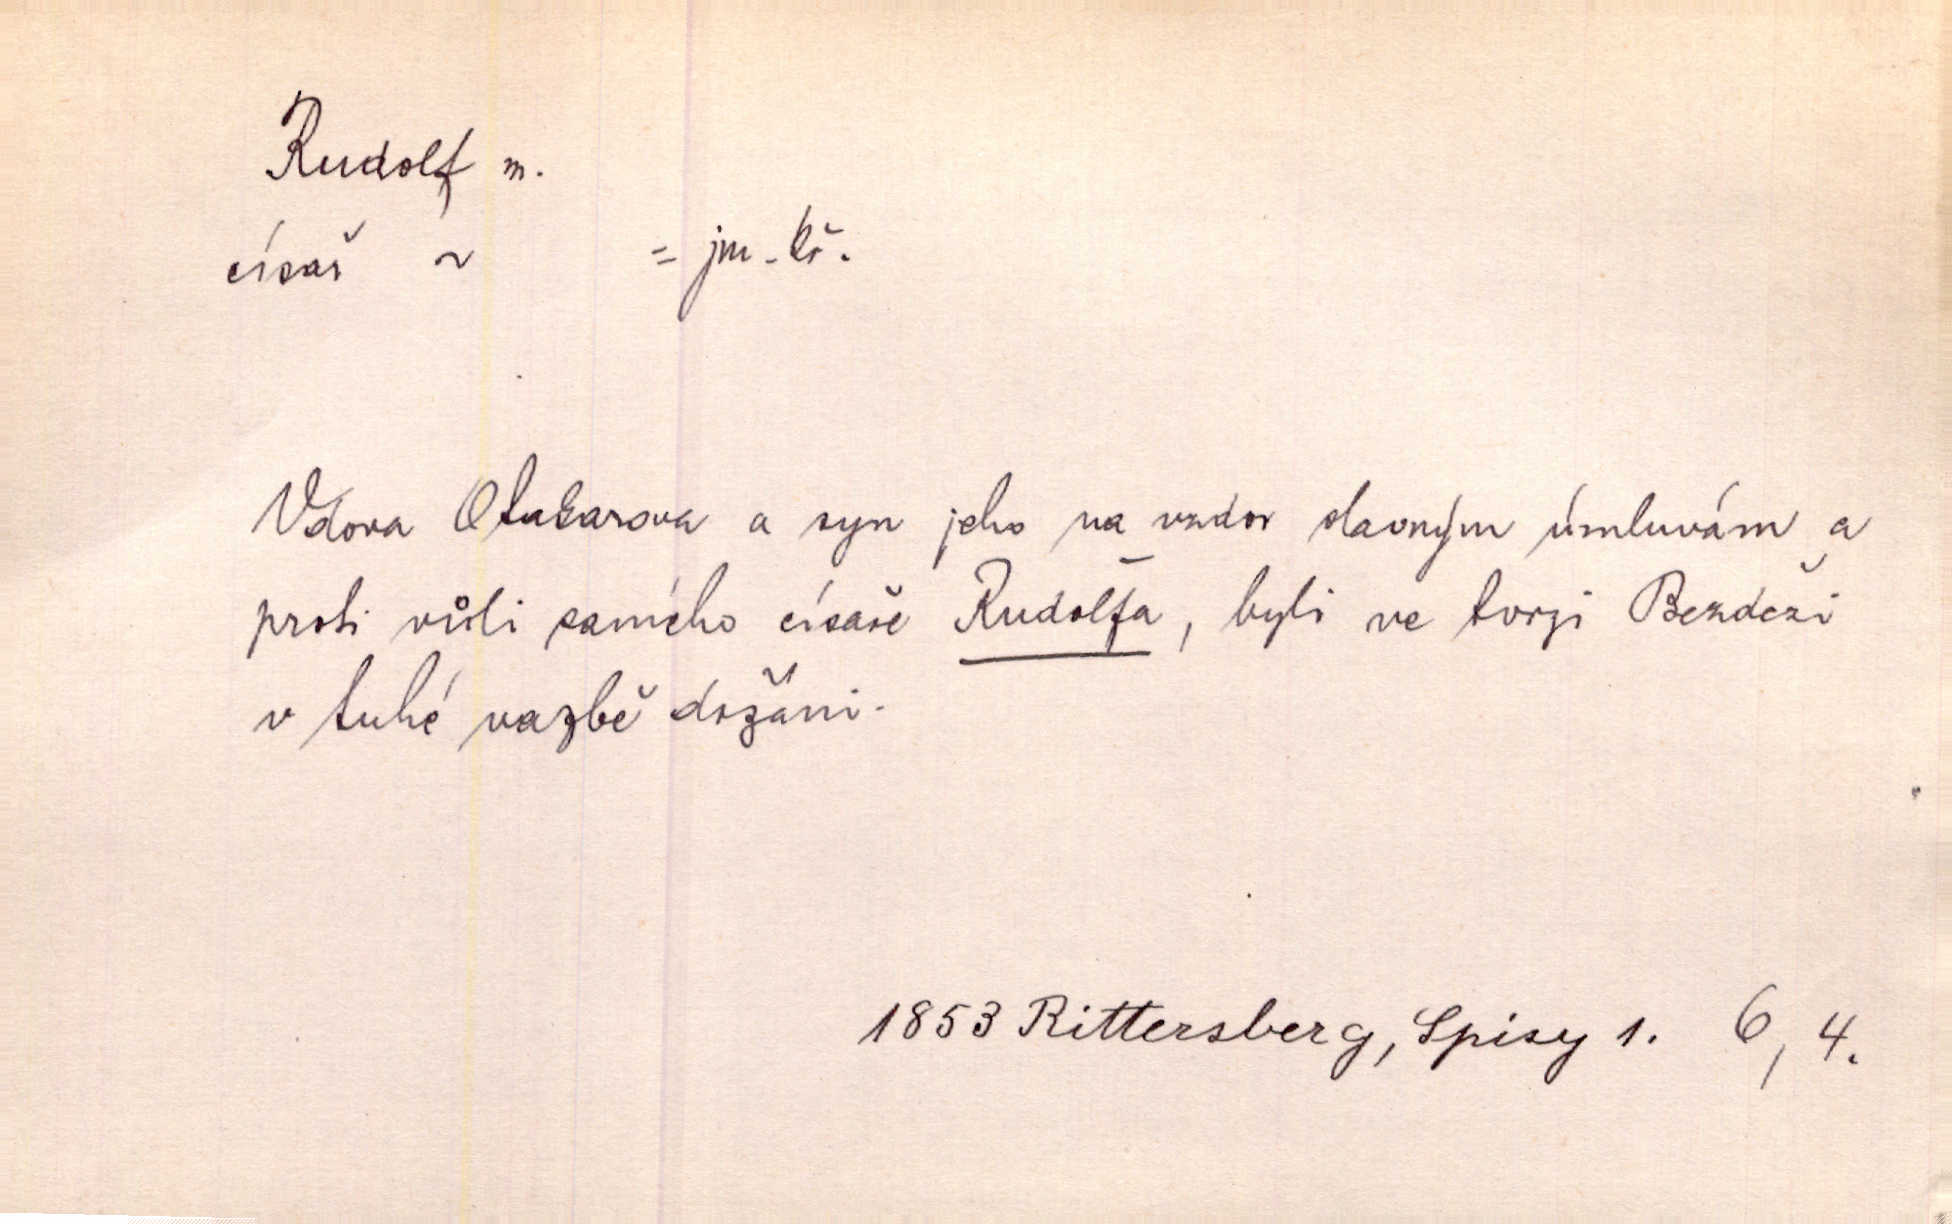 Rudolf m.
císař ~ = jm. kř.
Vdova Otakarova a syn jeho na vzdor slavným úmluvám a
proti vůli samého císaře Rudolfa, byli ve tvrzi Bezdězi
v tuhé vazbě držáni.
1853 Rittersberg, Spisy 1. 6, 4.